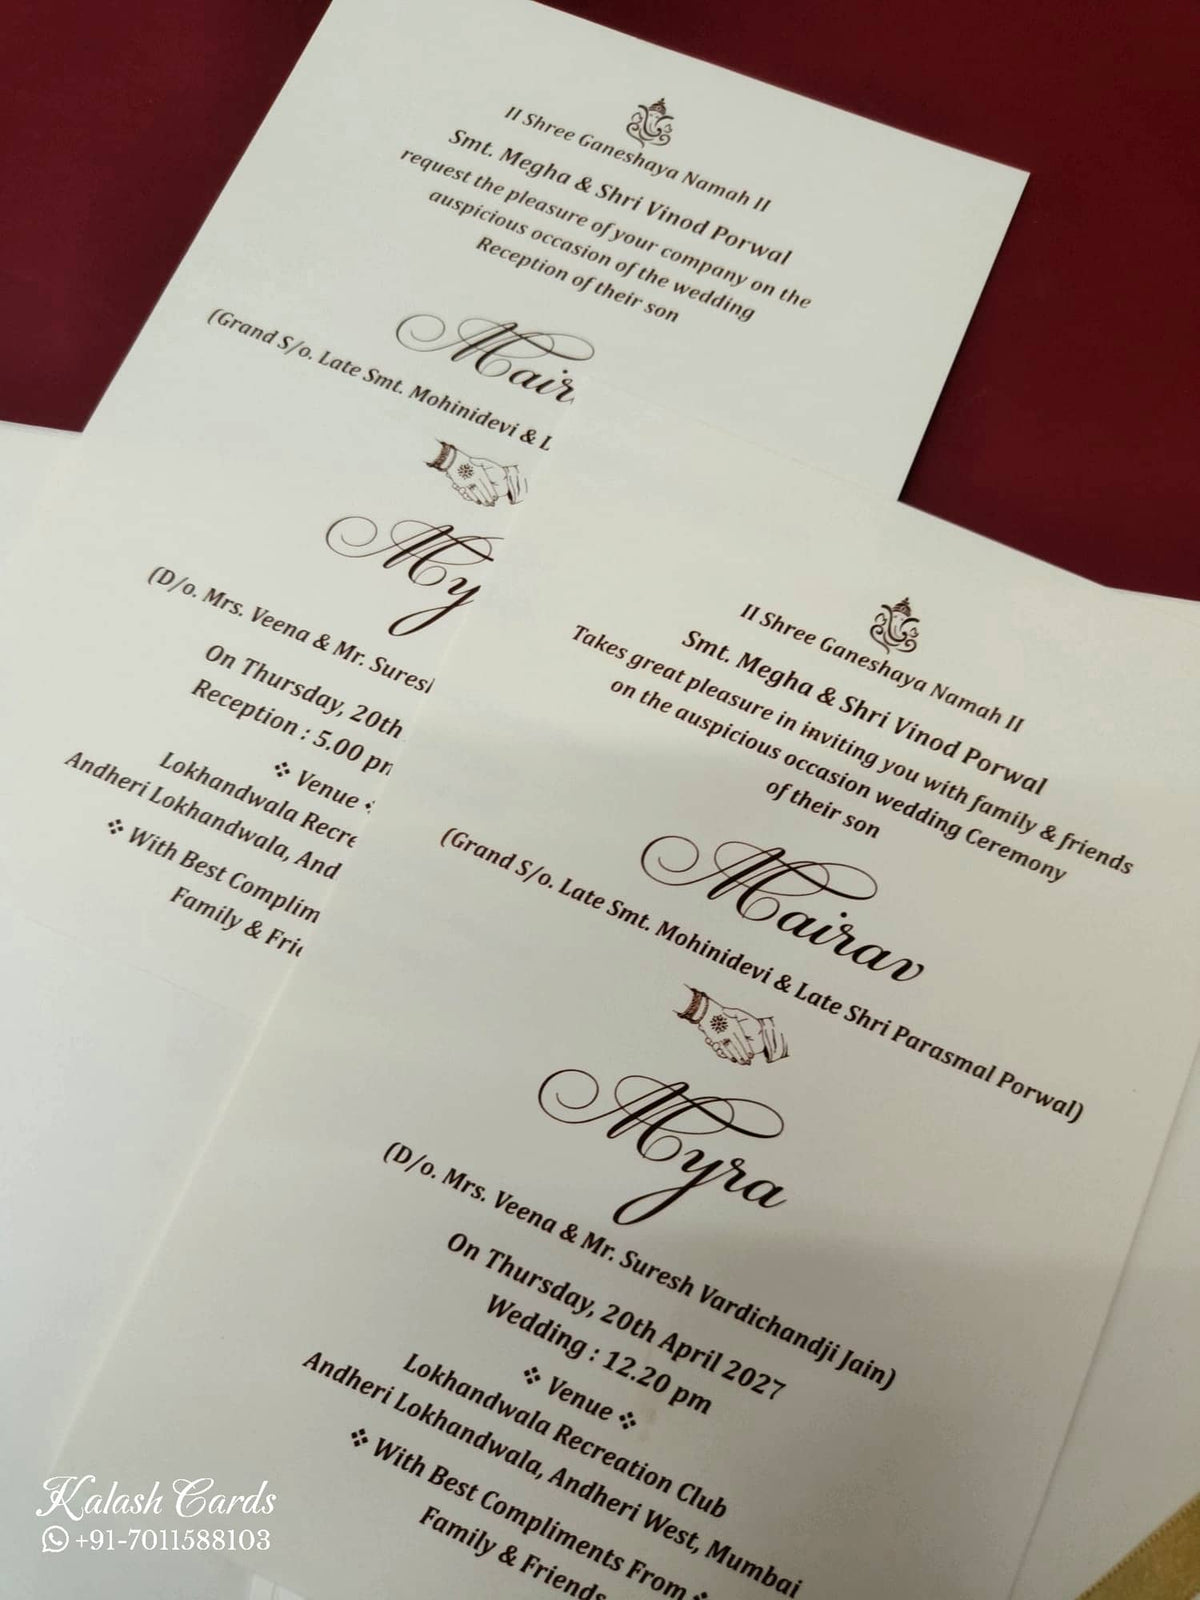 II Shree Ganeshaya Namah II
Smt. Megha & Shri Vinod Porwal
request the pleasure of your company on the
auspicious occasion of the wedding
Reception of their son
Mair
(Grand S/o. Late Smt. Mohinidevi & L
My
(D/o. Mrs. Veena & Mr. Suresh
On Thursday, 20th
Reception : 5.00 pm
❖ Venue ❖
Lokhandwala Recre
Andheri Lokhandwala, And
❖ With Best Complim
Family & Frie
II Shree Ganeshaya Namah II
Smt. Megha & Shri Vinod Porwal
Takes great pleasure in inviting you with family & friends
on the auspicious occasion wedding Ceremony
of their son
Mairav
(Grand S/o. Late Smt. Mohinidevi & Late Shri Parasmal Porwal)
Myra
(D/o. Mrs. Veena & Mr. Suresh Vardichandji Jain)
On Thursday, 20th April 2027
Wedding : 12.20 pm
❖ Venue ❖
Lokhandwala Recreation Club
Andheri Lokhandwala, Andheri West, Mumbai
❖ With Best Compliments From ❖
Family & Friends
Kalash Cards
+91-7011588103